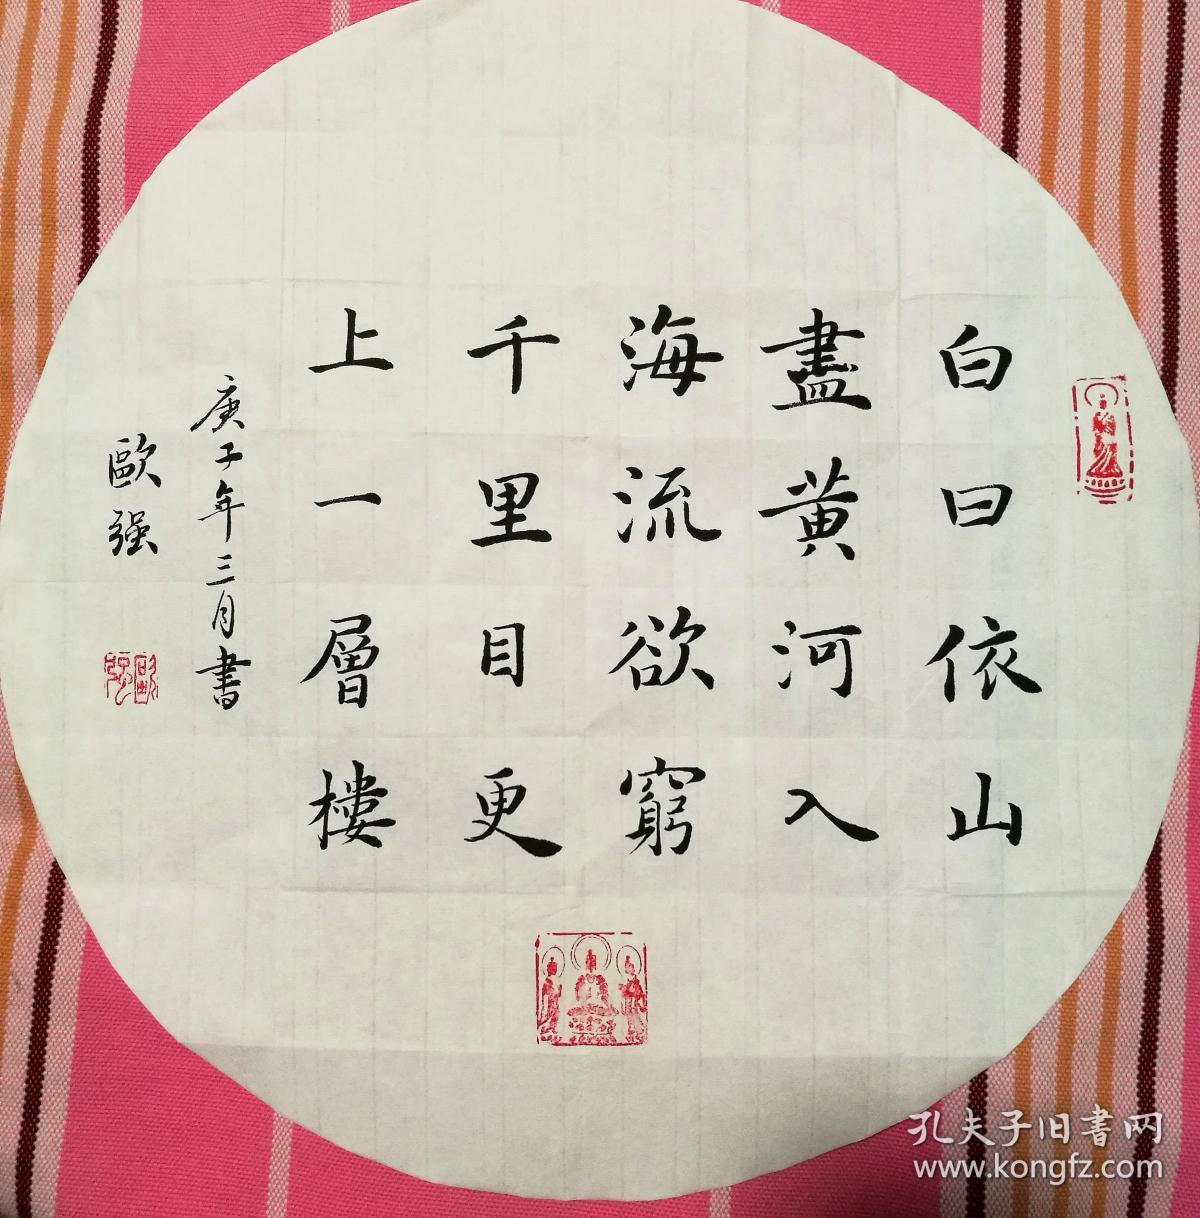 白日依山
盡黄河入
海流欲窮
千里目更
上一層樓
庚子年三月書
歐强
歐强
孔夫子旧書网
www.kongfz.com